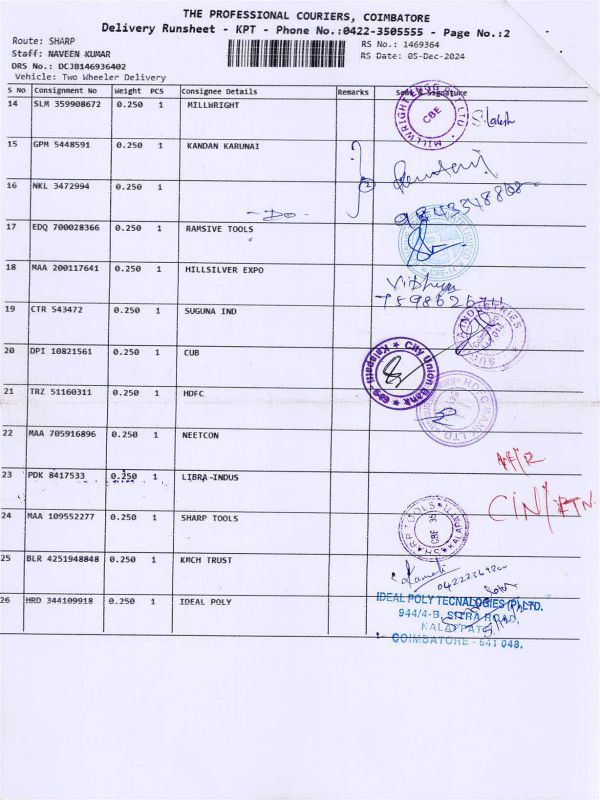 THE PROFESSIONAL COURIERS, COIMBATORE
Delivery Runsheet - KPT - Phone No.:0422-3505555 - Page No.:2
Route: SHARP
RS No.: 1469364
Staff: NAVEEN KUMAR
RS Date: 05-Dec-2024
DRS No.: DCJB146936402
Vehicle: Two Wheeler Delivery
S No Consignment No Weight PCS Consignee Details Remarks Seal & Signature
14 SLM 359908672 0.250 1 MILLWRIGHT
CBE
15 GPM 5448591 0.250 1 KANDAN KARUNAI
16 NKL 3472994 0.250 1
-Do-
17 EDQ 700028366 0.250 1 RAMSIVE TOOLS
18 MAA 200117641 0.250 1 HILLSILVER EXPO
19 CTR 543472 0.250 1 SUGUNA IND
20 DPI 10821561 0.250 1 CUB
City Union Bank
Kalapatti
21 TRZ 51160311 0.250 1 HDFC
22 MAA 705916896 0.250 1 NEETCON
N/R
23 PDK 8417533 0.250 1 LIBRA-INDUS
C/N/ RTN
24 MAA 109552277 0.250 1 SHARP TOOLS
SHARP TOOLS
CBE 35
25 BLR 4251948848 0.250 1 KMCH TRUST
26 HRD 344109918 0.250 1 IDEAL POLY
IDEAL POLY TECNALOGIES (P) LTD.
944/4-B, SITRA ROAD,
KALAPPATTI
COIMBATORE - 641 048.